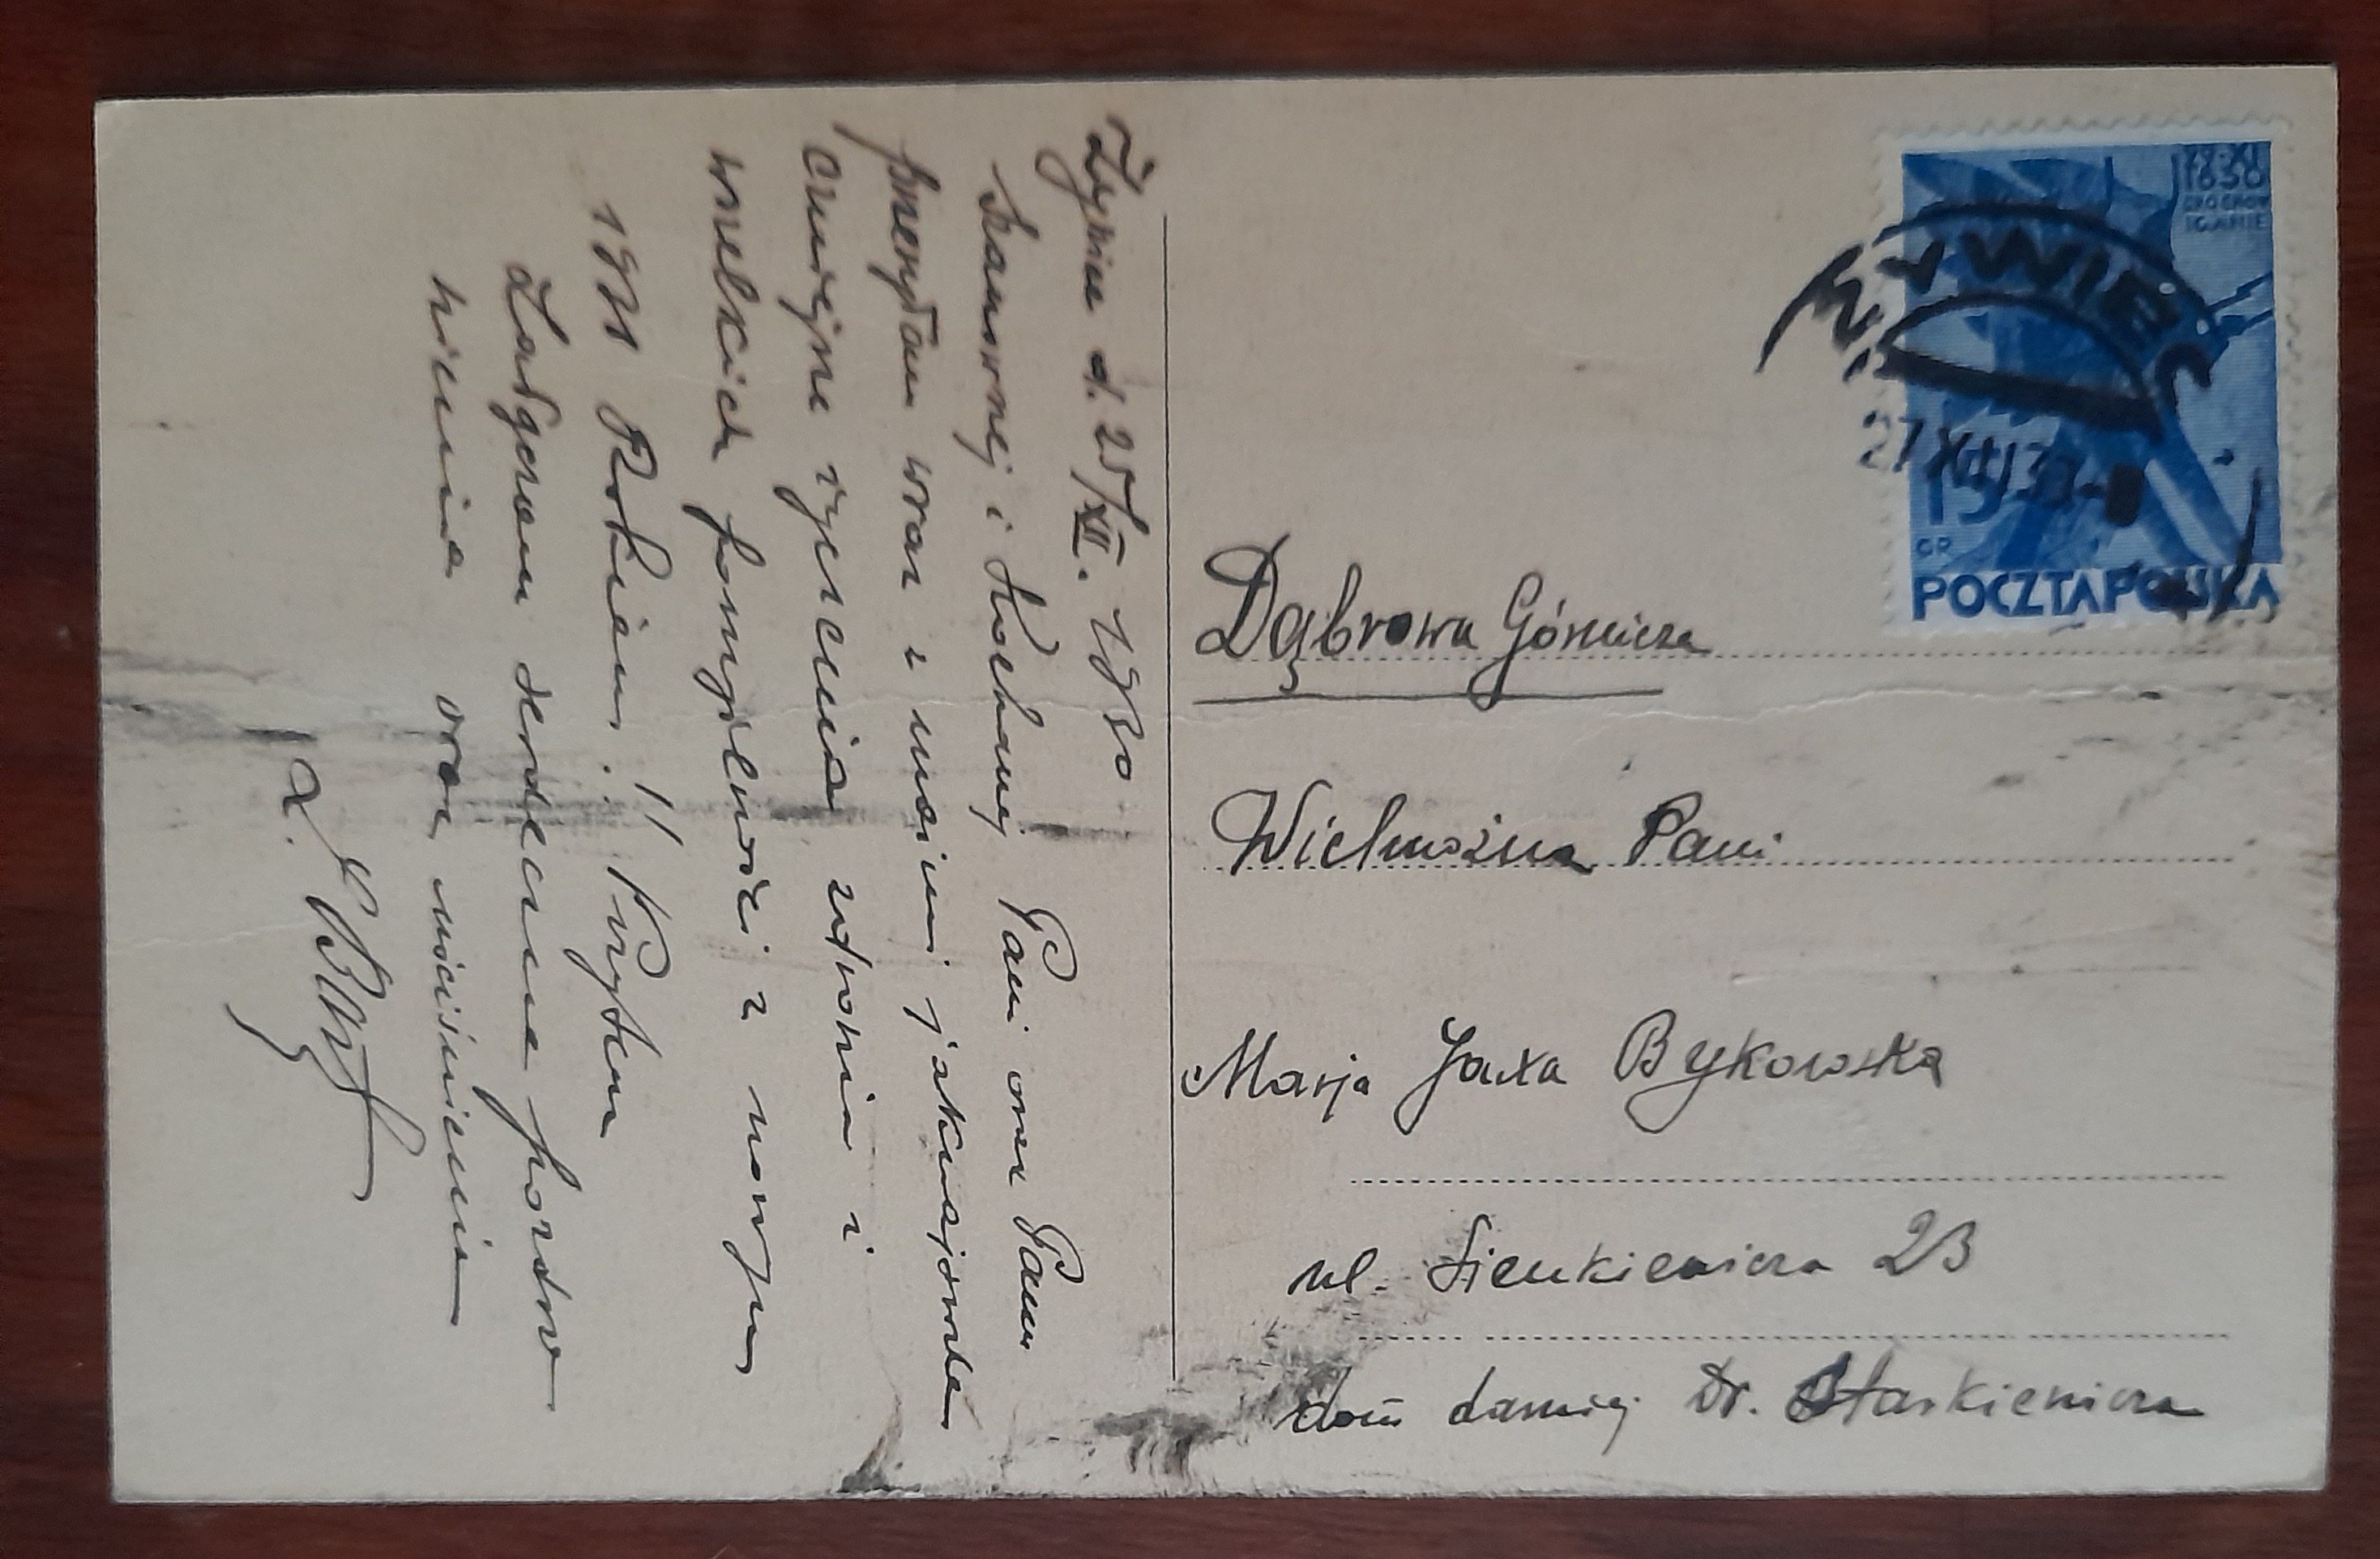 Żywiec d. 25/XII. 1930
Szanownej i Kochanej Pani oraz Panu
przesyłam wraz z moimi jaknajserdecz
życzenia zdrowia i
wszelkich pomyślności z nowym
1931 Rokiem. !! Przytem
Załączam serdeczne pozdro
wienia oraz uściśnienia
29 XI
1830
GROCHÓW
IGANIE
ŻYWIEC
27 XII 30
15
GR
POCZTA POLSKA
Dąbrowa Górnicza
Wielmożna Pani
Marja Jaxa Bykowska
ul. Sienkiewicza 23
dom dawniej Dr. Staszkiewicza